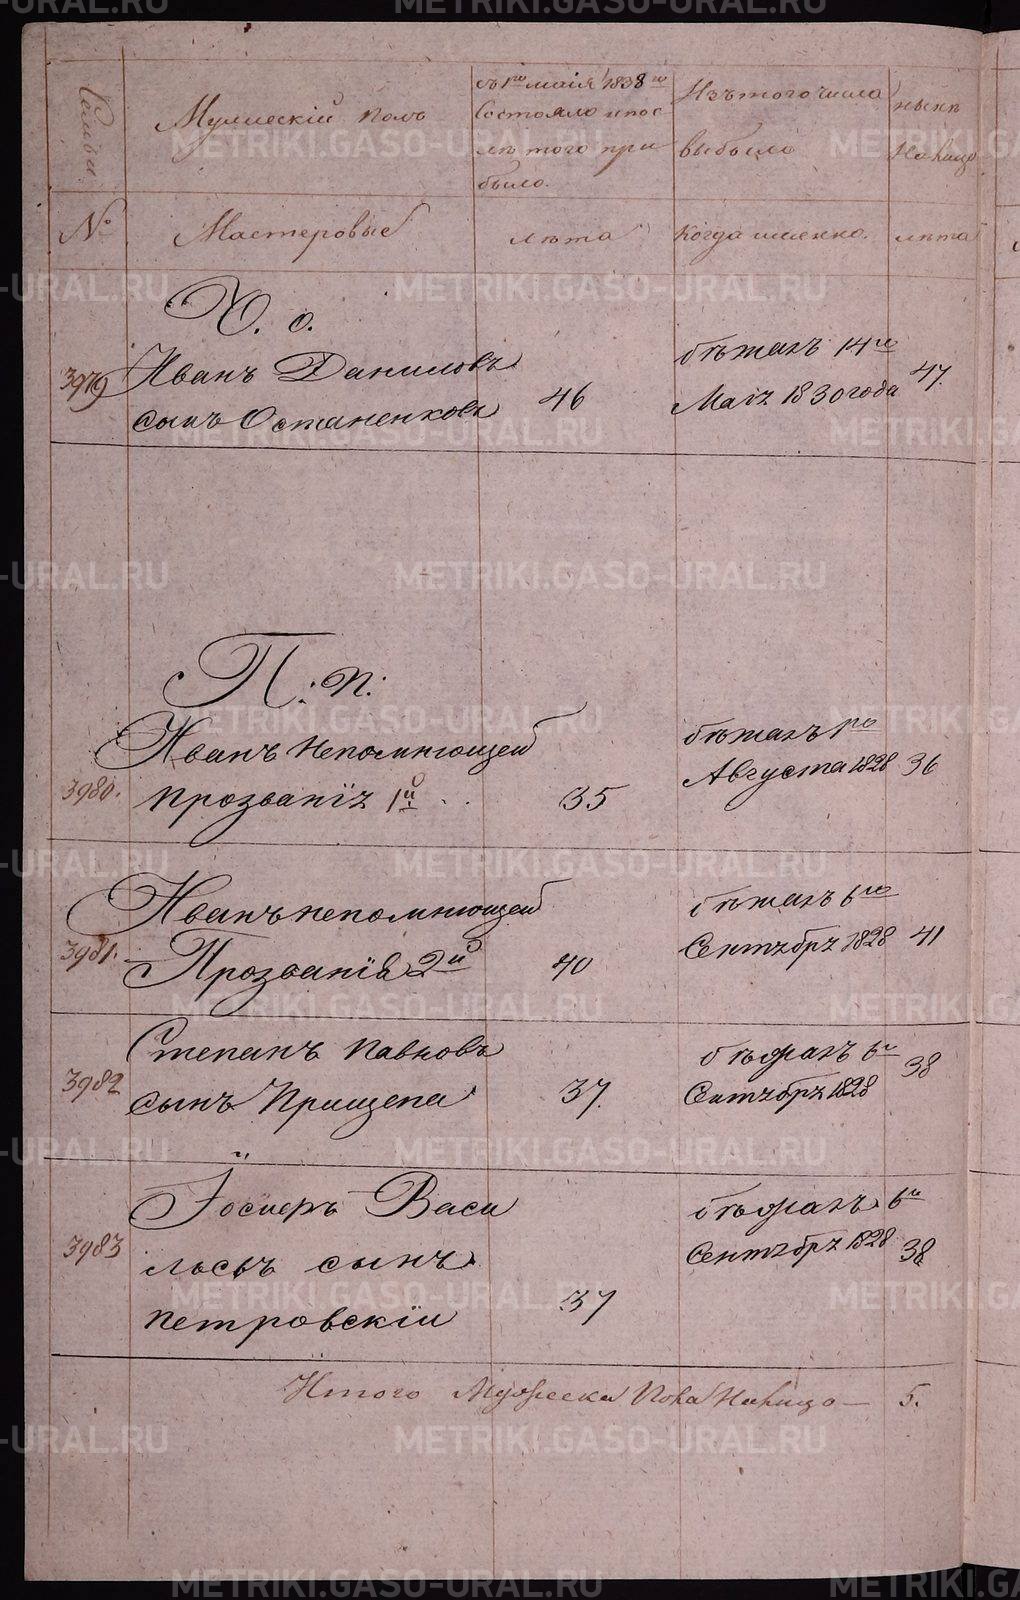 METRIKI.GASO-URAL.RU
Семьи
Мужескiй полъ
съ 1го маiя 1838го
Состояло и пос-
лѣ того при
было.
Изъ того числа
выбыло
нынѣ
На лицо
№
Мастеровые
лѣта
Когда именно.
лѣта
О. о.
3979
Иванъ Даниловъ
сынъ Остапенковъ
46
бѣжалъ 14го
Маiя 1830 года
47.
П: п:
3980.
Иванъ непомнющей
прозванiя 1й
35
бѣжалъ 1го
Августа 1828
36
3981.
Иванъ непомнющей
Прозванiя 2й
40
бѣжалъ 6го
Сентября 1828
41
3982
Степанъ Павловъ
сынъ Прищепа
37.
бѣжалъ 6го
Сентября 1828
38
3983
Iосифъ Васи
льевъ сынъ
петровскiй
37
бѣжалъ 6го
Сентября 1828
38
Итого Мужеска пола На лицо —
5.